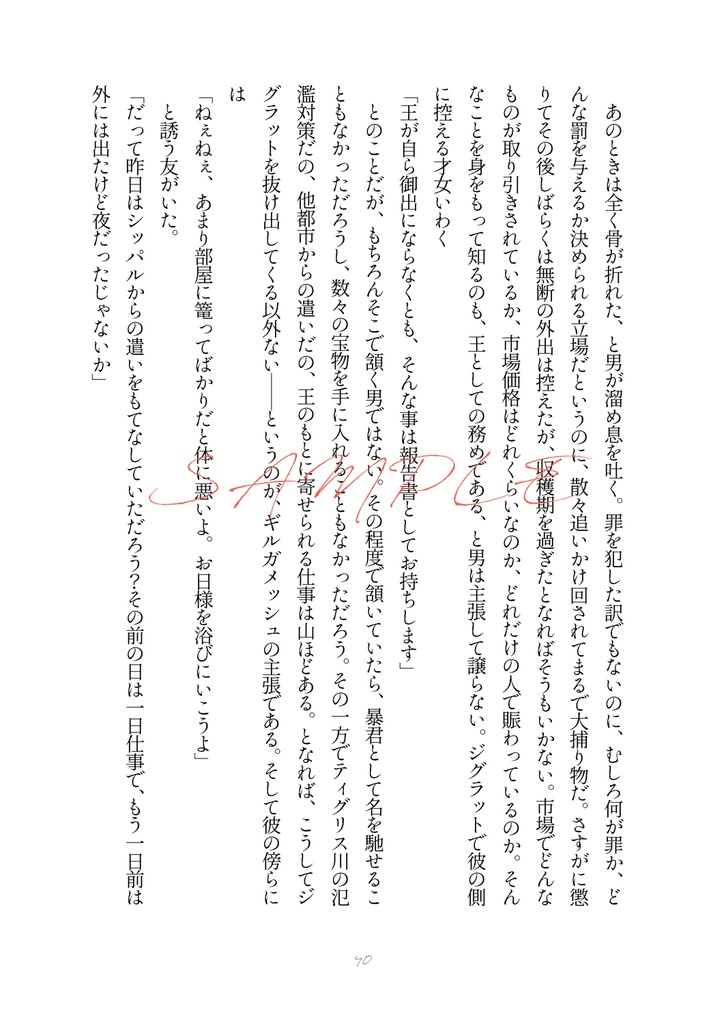 あのときは全く骨が折れた、と男が溜め息を吐く。罪を犯した訳でもないのに、むしろ何が罪か、ど
んな罰を与えるか決められる立場だというのに、散々追いかけ回されてまるで大捕り物だ。さすがに懲
りてその後しばらくは無断の外出は控えたが、収穫期を過ぎたとなればそうもいかない。市場でどんな
ものが取り引きされているか、市場価格はどれくらいなのか、どれだけの人で賑わっているのか。そん
なことを身をもって知るのも、王としての務めである、と男は主張して譲らない。ジグラットで彼の側
に控える才女いわく
「王が自ら御出にならなくとも、そんな事は報告書としてお持ちします」
とのことだが、もちろんそこで頷く男ではない。その程度で頷いていたら、暴君として名を馳せるこ
ともなかっただろうし、数々の宝物を手に入れることもなかっただろう。その一方でティグリス川の氾
濫対策だの、他都市からの遣いだの、王のもとに寄せられる仕事は山ほどある。となれば、こうしてジ
グラットを抜け出してくる以外ない――というのが、ギルガメッシュの主張である。そして彼の傍らに
は
「ねぇねぇ、あまり部屋に篭ってばかりだと体に悪いよ。お日様を浴びにいこうよ」
と誘う友がいた。
「だって昨日はシッパルからの遣いをもてなしていただろう?その前の日は一日仕事で、もう一日前は
外には出たけど夜だったじゃないか」
SAMPLE
40